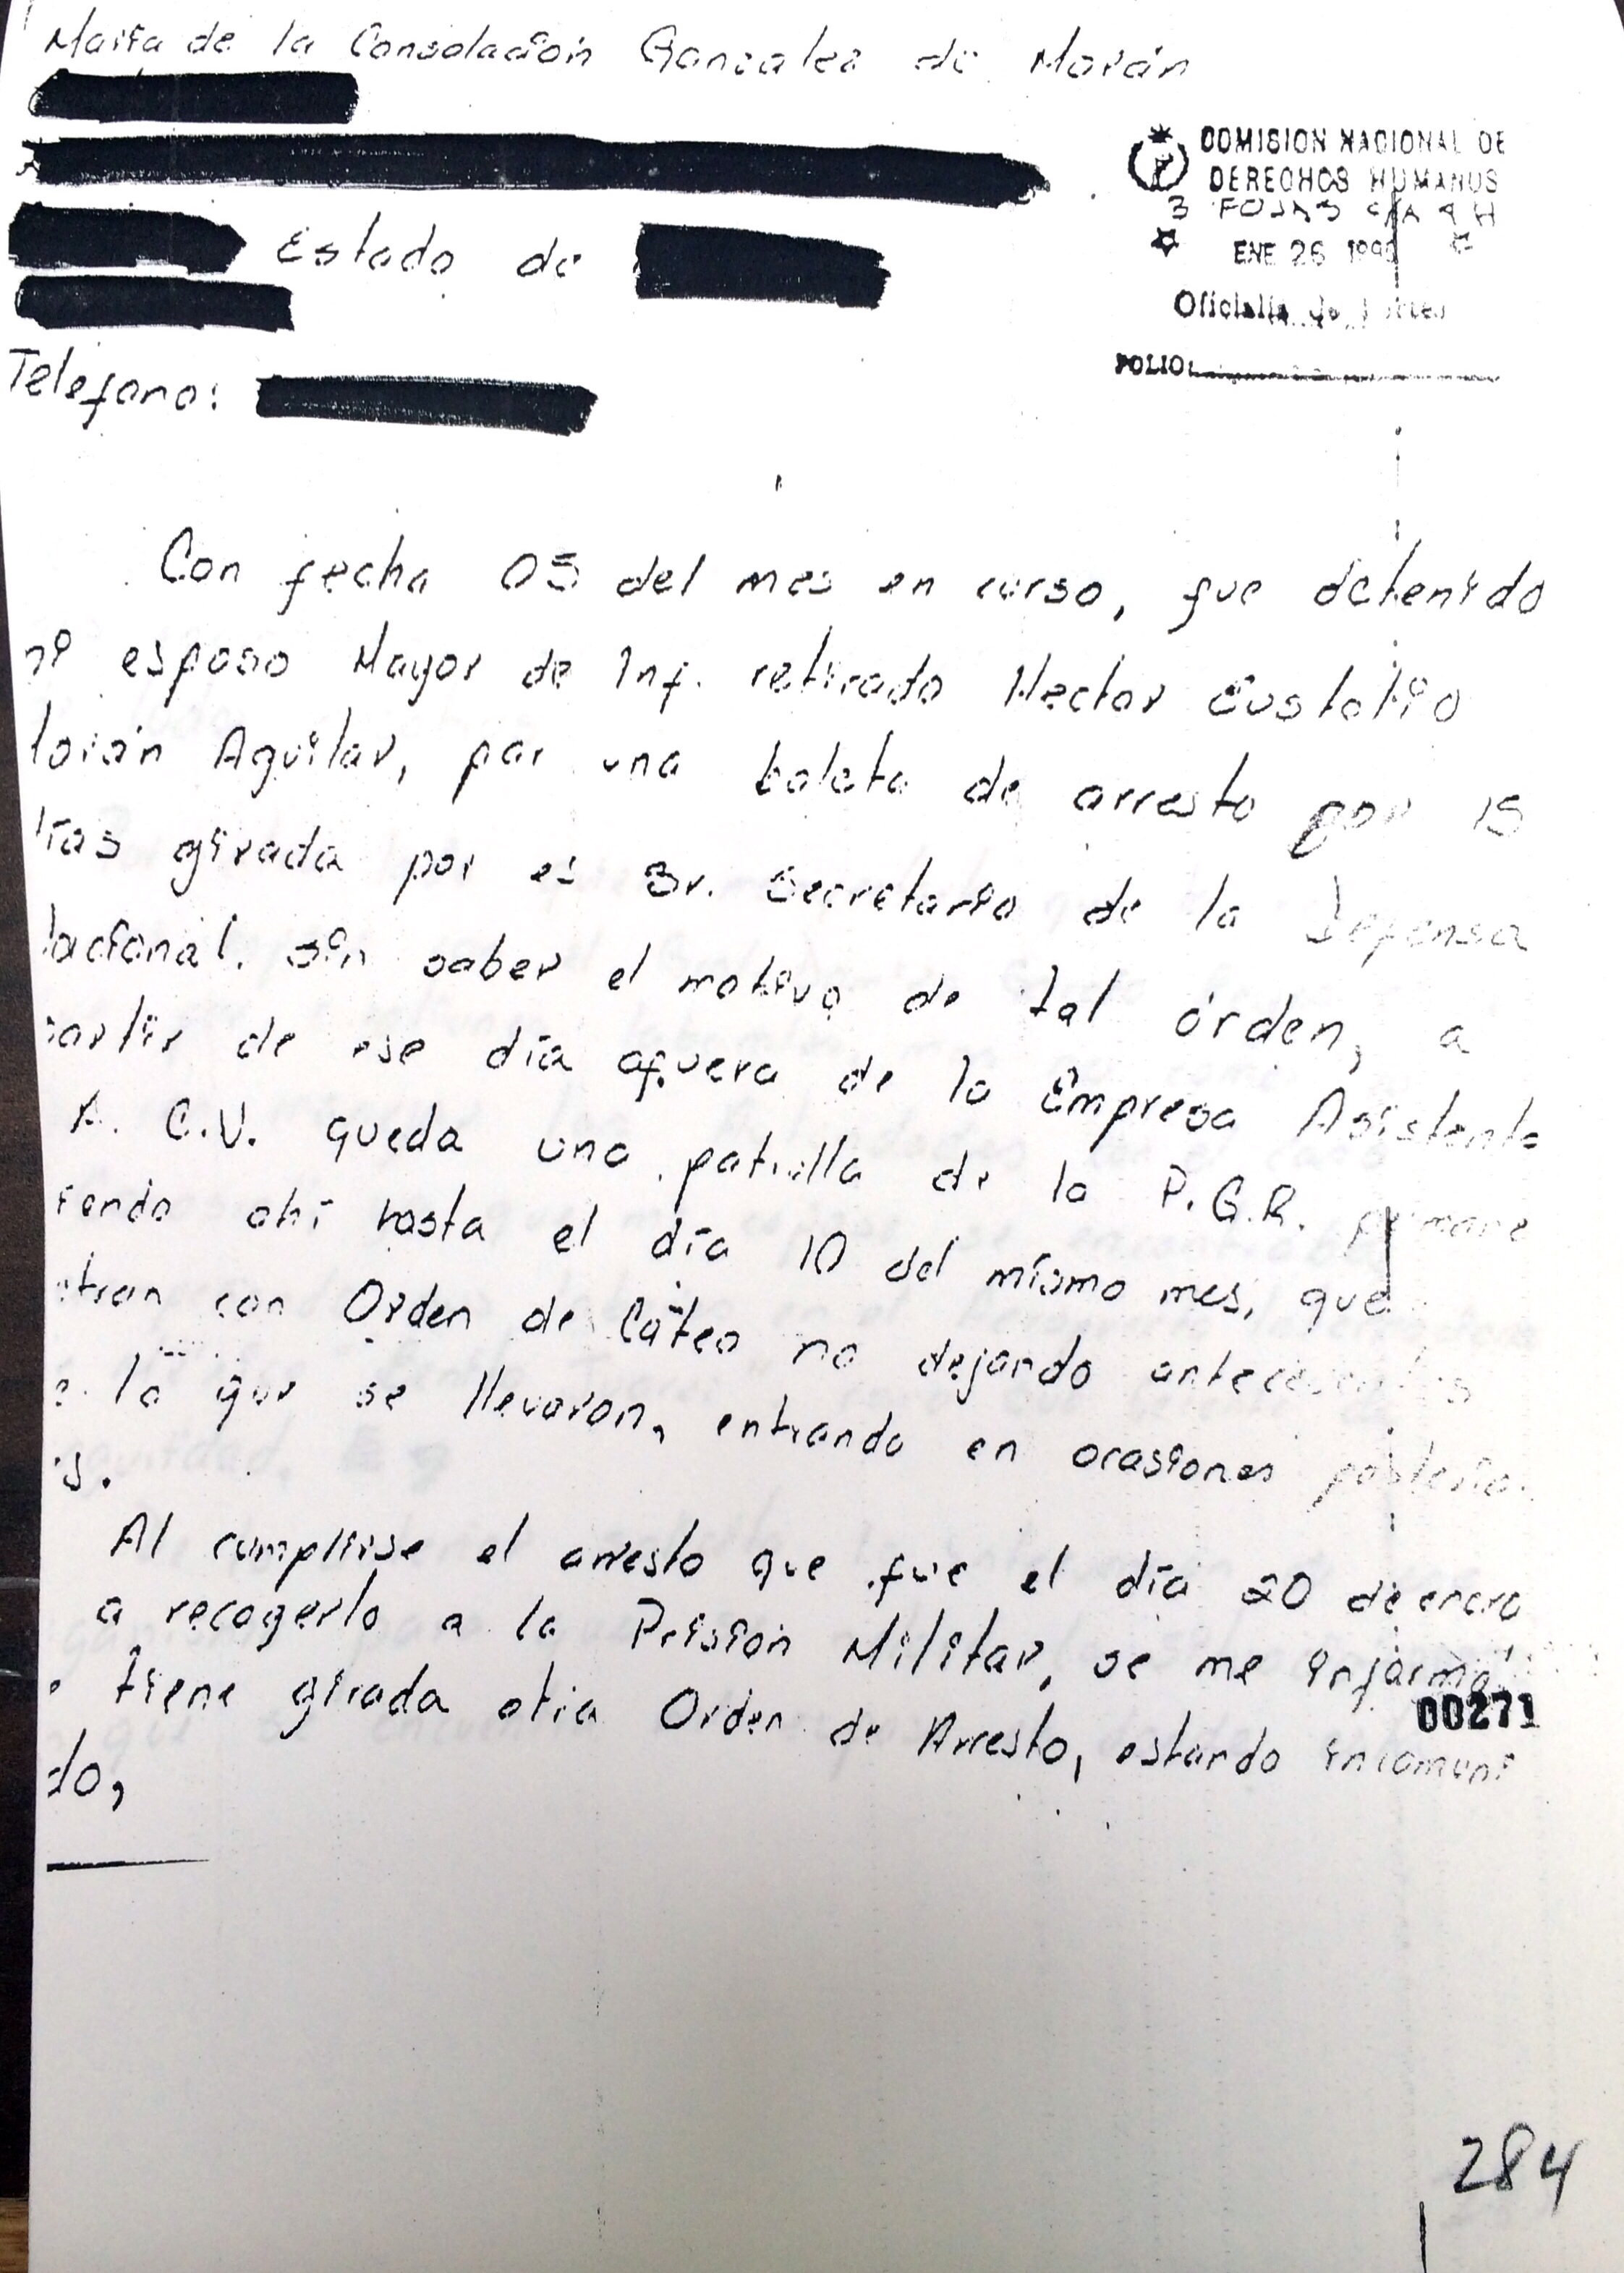 María de la Consolación Gonzalez de Morán
COMISION NACIONAL DE
DERECHOS HUMANOS
3 FOJAS
Estado de
ENE 26 199
Oficialía de
Telefono:
FOLIO:
Con fecha 05 del mes en curso, fue detenido
esposo Mayor de Inf. retirado Hector Eustolio
Aguilar, por una boleta de arresto por 15
girada por es Sr. Secretario de la Defensa
sin saber el motivo de tal órden, a
de ese día afuera de la Empresa Asistent
A. C.V. queda una patrulla de la P.G.R. permane
ahí hasta el día 10 del mismo mes, que
con Orden de Cáteo no dejando antecedentes
lo que se llevaron, entrando en ocasiones posterio
s.
Al cumplirse el arresto que fue el día 20 de enero
a recogerlo a la Prisión Militar, se me informó
tiene girada otra Orden de Arresto, estando incomuni
do,
00271
284